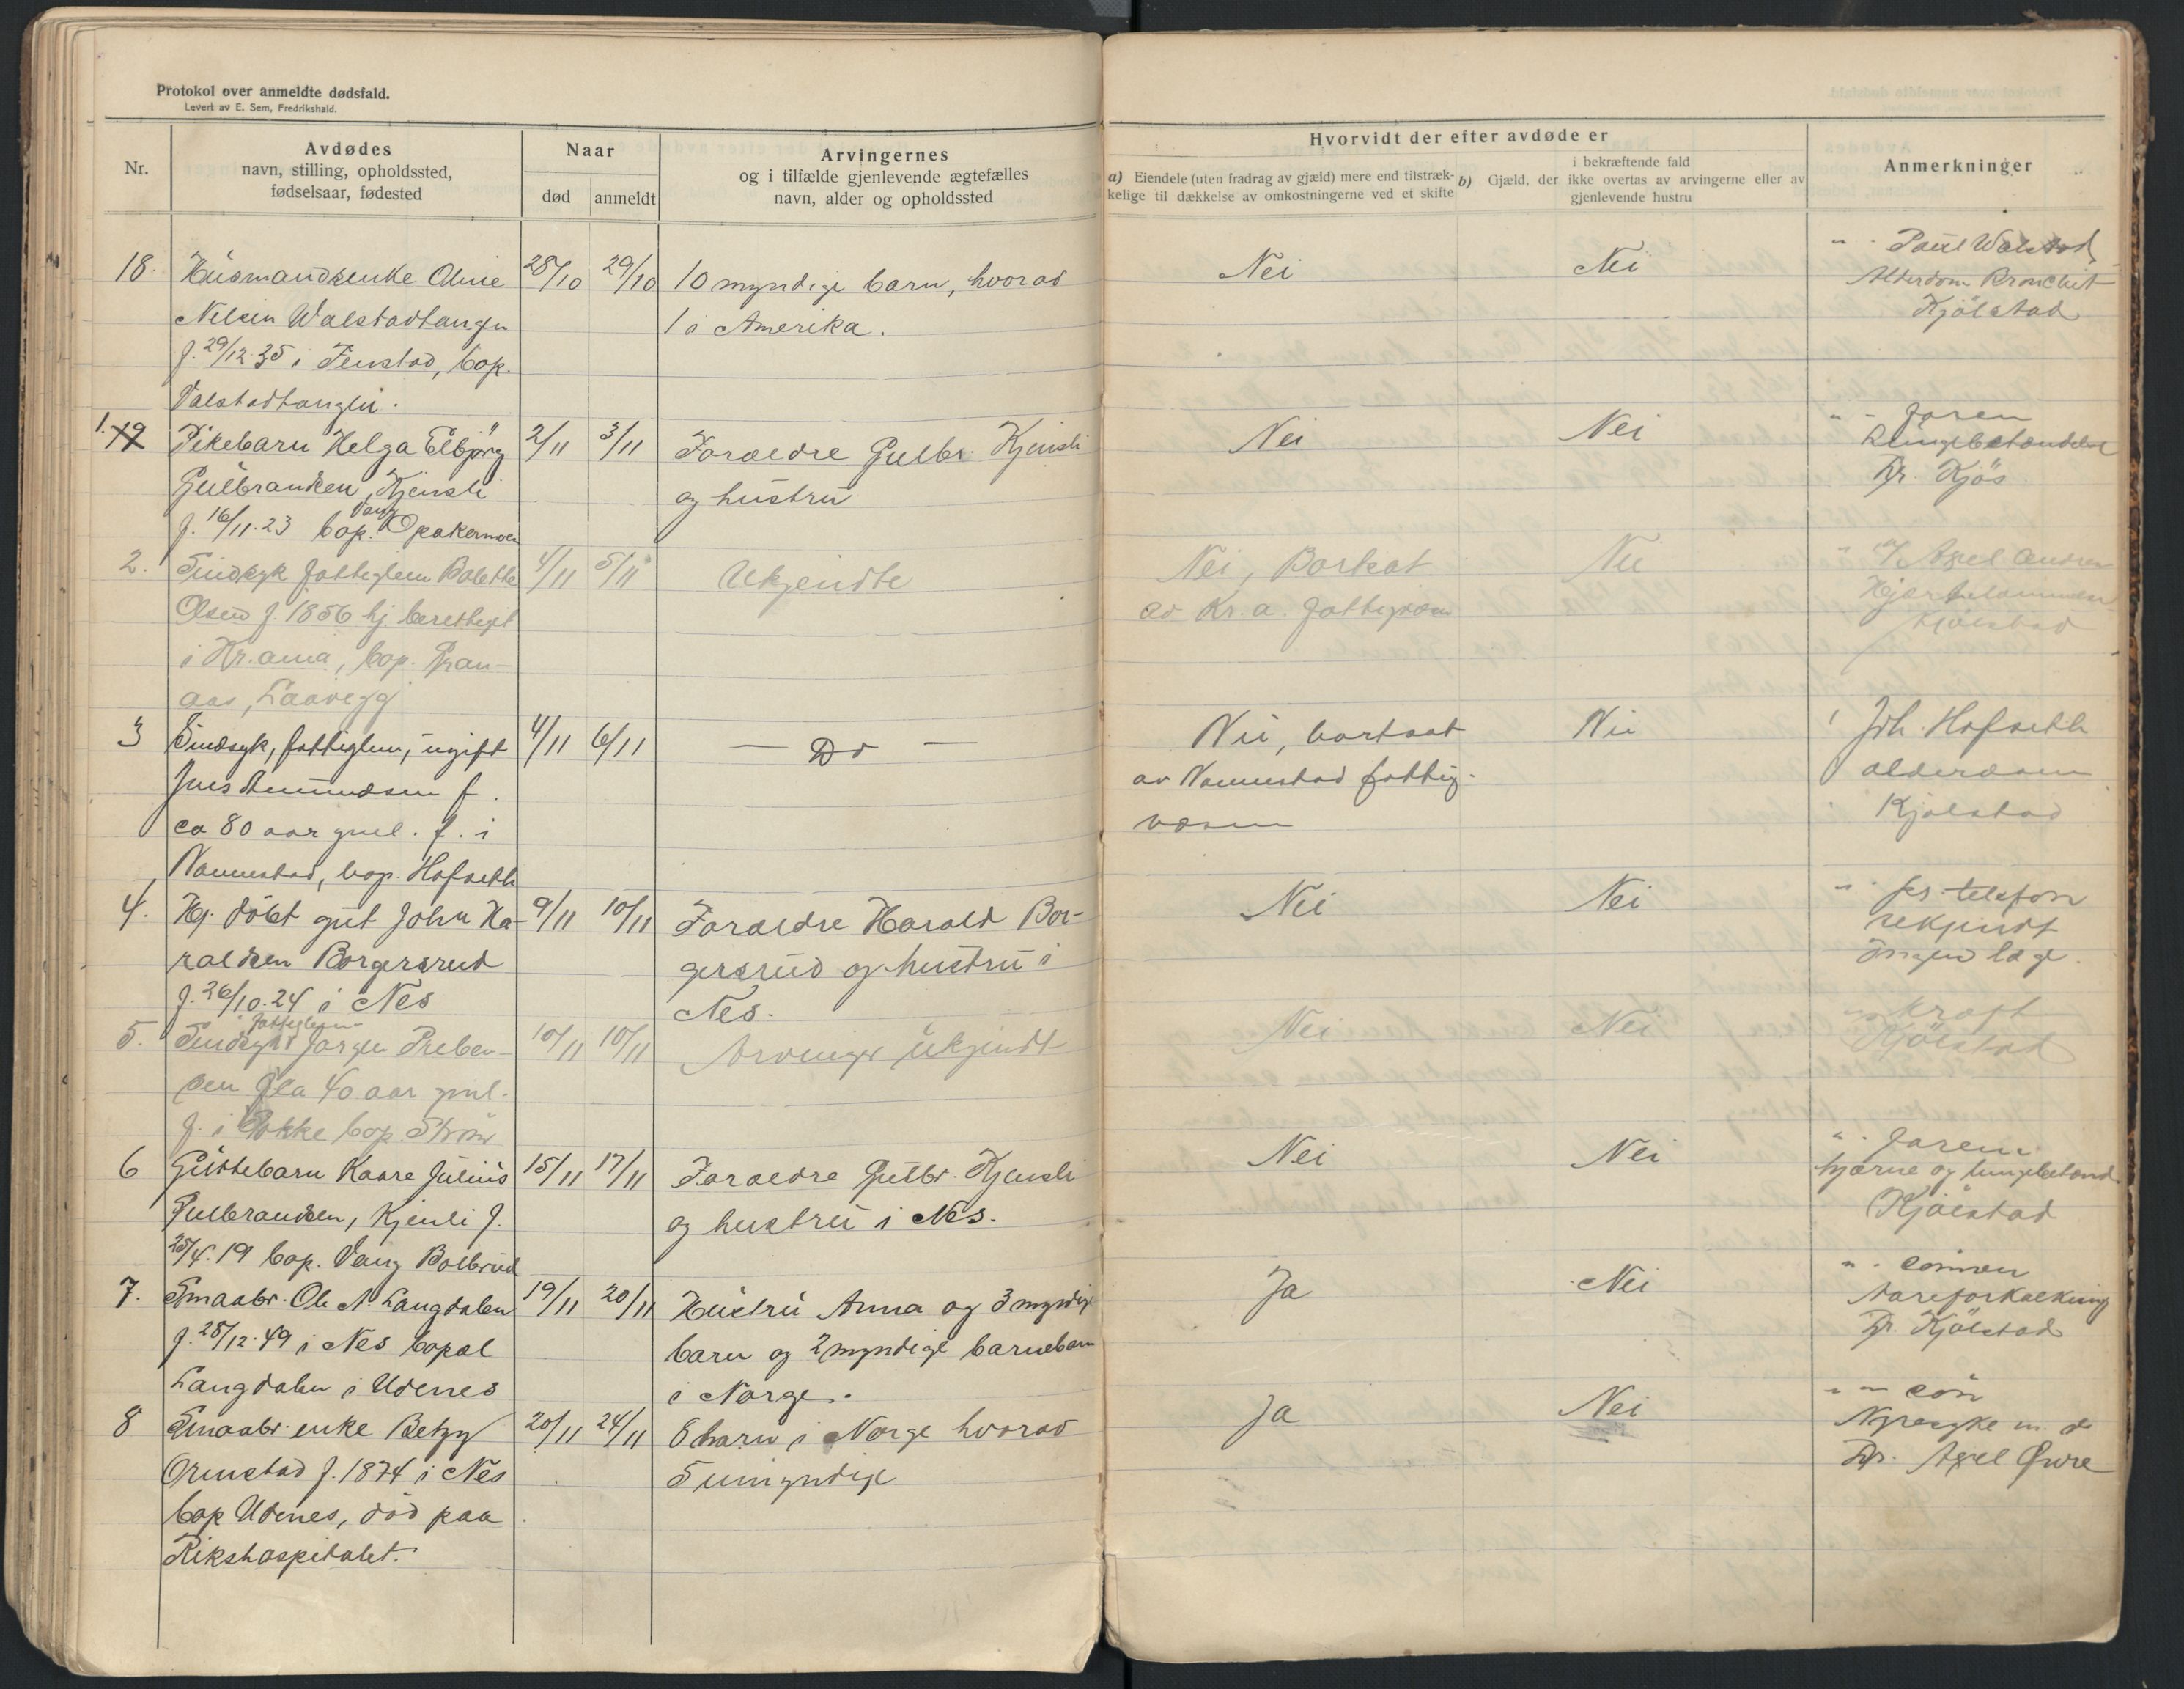 Protokol over anmeldte dødsfald.
Levert av E. Sem, Fredrikshald.
Nr.
Avdødes
navn, stilling, opholdssted,
fødselsaar, fødested
Naar
død
anmeldt
Arvingernes
og i tilfælde gjenlevende ægtefælles
navn, alder og opholdssted
Hvorvidt der efter avdøde er
a) Eiendele (uten fradrag av gjæld) mere end tilstræk-
kelige til dækkelse av omkostningerne ved et skifte
i bekræftende fald
b) Gjæld, der ikke overtas av arvingerne eller av
gjenlevende hustru
Anmerkninger
18 Husmandsenke Oline
Nelsen Walstadtangen
f. 29/12 35 i Fenstad, bop.
Valstadtangen.
28/10 29/10
10 myndige barn, hvorav
1 i Amerika.
Nei
Nei
" - Paul Walstad
Alderdom Bronchit
Kjölstad
1. 19 Pikebarn Helga Elbjørg
Gulbrandsen, Kjensli
f. 16/11.23 bop. Vang Opakermoen
2/11 3/11
Forældre Gulbr. Kjensli
og hustru
Nei
Nei
" - Faren
Lungebetændelse
Dr. Kjös
2. Sindsyk fattiglem Bolette
Olsen f. 1856 hj. berettiget
i Kr.ania, bop. Gran-
aas, Laavegg
4/11 5/11
Ukjendte
Nei, Bortsat
av Kr.a. fattigvæsen
Nei
" Axel Andresen
Kjölstad
3 Sindsyk, fattiglem, ugift
Jens Amundsen f.
ca 80 aar gml. f. i
Nannestad, bop. Hofseth
4/11 6/11
— Do —
Nei, bortsat
av Nannestad fattig-
væsen
Nei
Joh. Hofseth
alderdom
Kjølstad
4. Hj. döbt gut John Ha-
raldsen Borgersrud
f. 26/10.24 i Nes
9/11 10/11
Forældre Harald Bor-
gersrud og hustru i
Nes.
Nei
Nei
" - pr. telefon
ukjendt
Ingen læge.
5. Sindsyk fattiglem Jørgen Preben-
sen Gla 40 aar gml.
f. i Rakke bop. Strøm
10/11 10/11
Arvinger ukjendt
Nei
Nei
kraft
Kjölstad
6 Guttebarn Kaare Julius
Gulbrandsen, Kjensli f.
25/4.19 bop. Vang Bolbrud
15/11 17/11
Forældre Gulbr. Kjensli
og hustru i Nes.
Nei
Nei
" - Faren
hjerne og lungebetænd.
Kjölstad
7. Smaabr. Ole N. Langdalen
f. 28/12.49 i Nes bopæl
Langdalen i Udenes
19/11 20/11
Hustru Anna og 3 myndige
barn og 2 myndige barnebarn
i Norge.
Ja
Nei
" - sönnen
Aareforkalkning
Dr. Kjölstad
8 Smaabr. enke Betzy
Ormstad f. 1874 i Nes
bop Udenes, död paa
Rikshospitalet.
20/11 24/11
8 barn i Norge hvorav
5 umyndige
Ja
Nei
" - sön
Nyresyke m. d
Dr. Axel Øvre